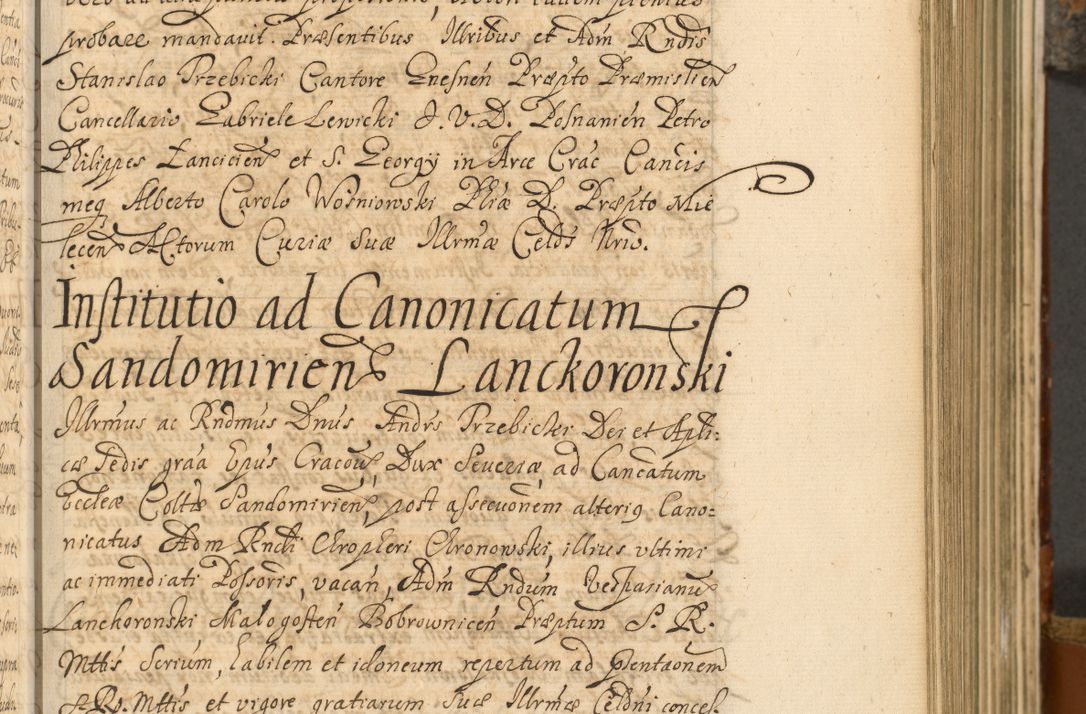 probare mandavit. Præsentibus Illribus et Adm Rndis
Stanislao Przebicki Cantore Gnesneń Præpto Præmislień
Cancellario Gabriele Lewicki J. V. D. Posnanień Petro
Philippes Lancicień et S. Georgÿ in Arce Crac Cancis
meq Alberto Carolo Woźniowski Phiæ D. Præpto Mie
lecen Actorum Curiæ Suæ Illrmæ Celdis Nrio.
Institutio ad Canonicatum
Sandomirień Lanckoronski
Illrmus ac Rndmus Dnus Andrs Przebicki Dei et Apli:
cæ Sedis graa Epus Cracou, Dux Severiæ, ad Cancatum
Eccleæ Coltæ Sandomirień, post assecuonem alterig Cano:
nicatus Adm Rndi Chropheri Chronowski, illius vltimi
ac immediati Possoris, vacań, Adm Rndum Vespasianu
Lanckoronski Malogosteń Bobrownicen Præptum S. R.
Mttis Serium, habilem et idoneum repertum ad pntaonem
S. R. Mttis et vigore gratiarum Suæ Illrmæ Celdni concel.